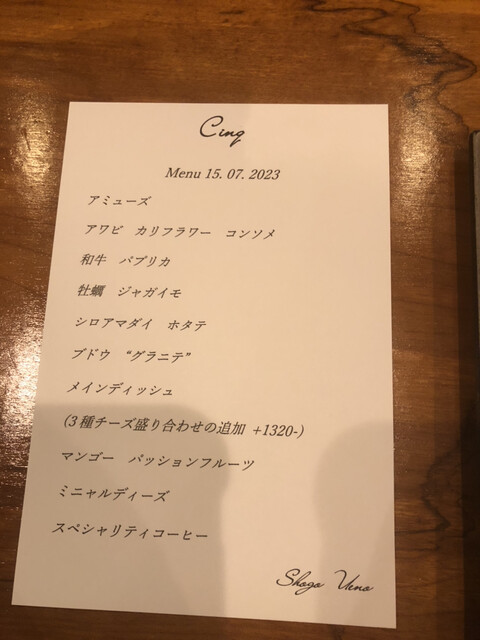 Cinq
Menu 15. 07. 2023
アミューズ
アワビ　カリフラワー　コンソメ
和牛　パプリカ
牡蠣　ジャガイモ
シロアマダイ　ホタテ
ブドウ　“グラニテ”
メインディッシュ
(3種チーズ盛り合わせの追加 +1320-)
マンゴー　パッションフルーツ
ミニャルディーズ
スペシャリティコーヒー
Shogo Ueno